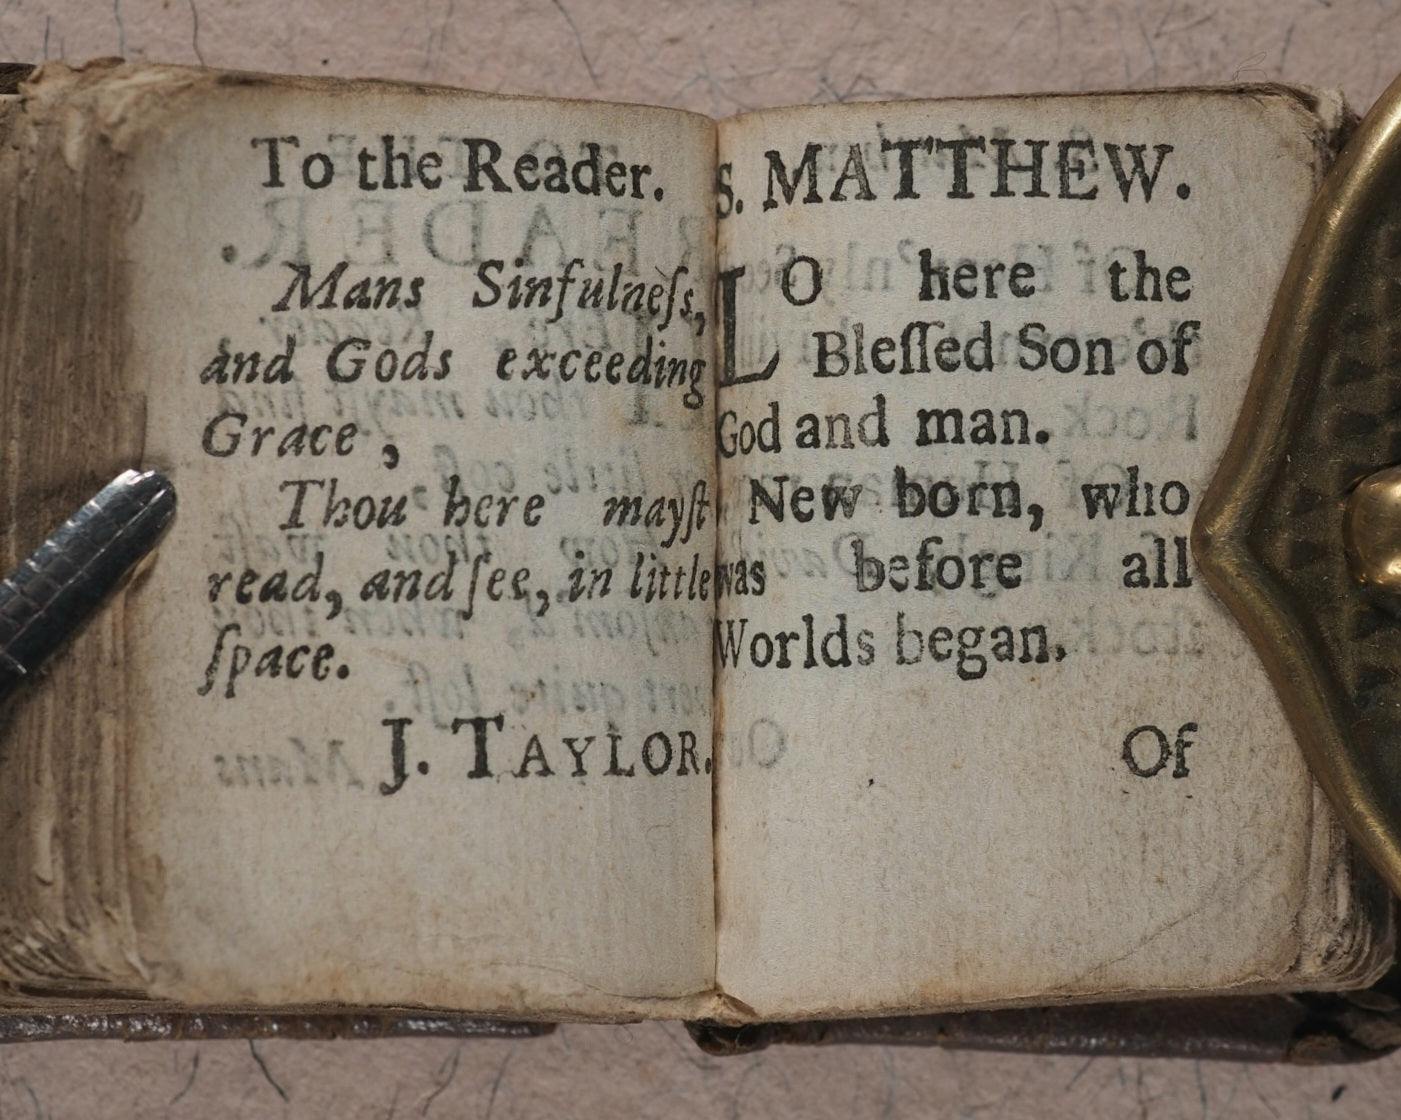 To the Reader.
Mans Sinfulneſs,
and Gods exceeding
Grace,
Thou here mayſt
read, and ſee, in little
ſpace.
J. TAYLOR.
S. MATTHEW.
LO here the
Bleſſed Son of
God and man.
New born, who
was before all
Worlds began.
Of